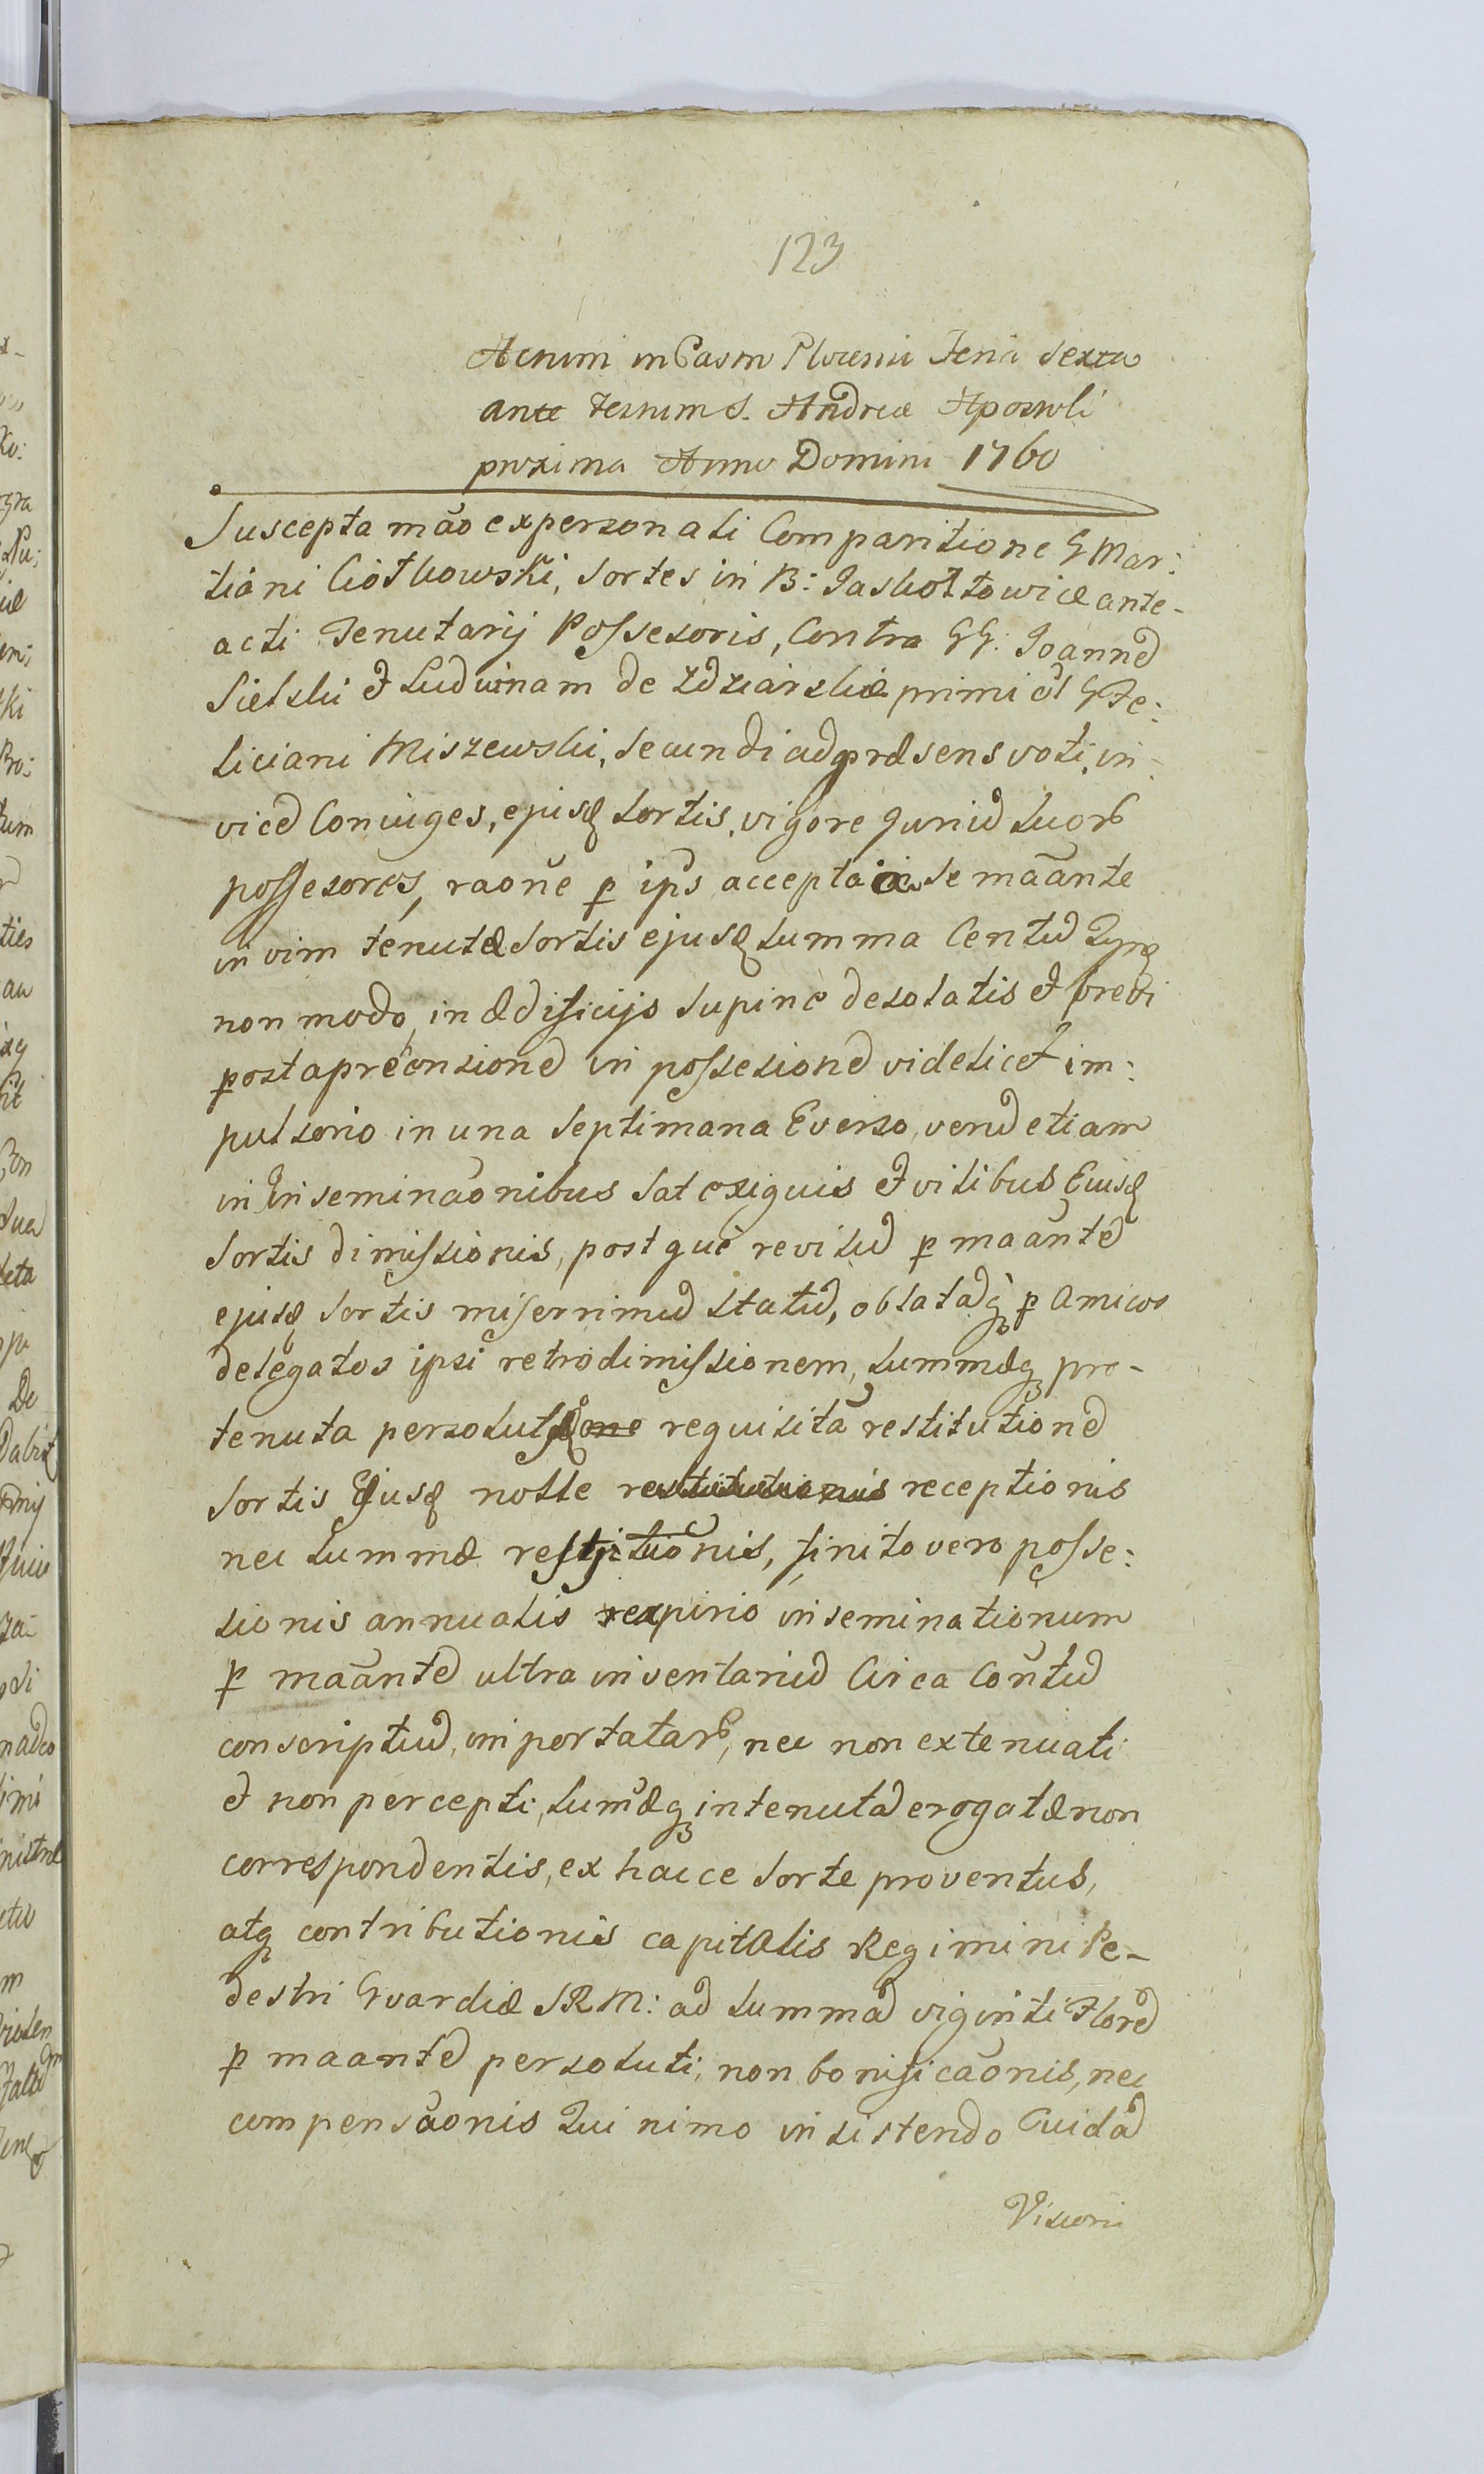 123
Actum in Castro Plocensi Feria Sexta
ante Festum S. Andreæ Apostoli
proxima Anno Domini 1760
Suscepta mão expersonali Comparitione G Mar:
tiani Ciółkowski, Sortes in B: Jaskołtowicæ ante-
acti Tenutarij Possesoris, Contra GG. Joannẽ
Sielski et Ludvinam de Zdziarskie primi et G Fe:
liciani Miszewski, Secundi ad præsens voti, in:
vicẽ Coniuges, ejusq Sortis, vigore Juriũ Suorũ
possesores, raone p ips accepta a se maante
in vim tenutæ Sortis ejusq Summa Centũ
non modo, in ædificijs Supine desolatis et brevi
post aprehensionẽ in possesionẽ videlicet im:
pulsorio in una Septimana Everso, verũ etiam
in Inseminãonibus Sat exiguis et vilibus Eiusq
Sortis dimissionis, post quẽ revisũ p maantẽ
ejusq Sortis miserrimũ Statũ, oblatãq p Amicos
delegatos ipsi retrodimissionem, Summæq pro-
tenuta persolutæ requisitã restitutionẽ
Sortis Ejusq nolle restitutionis receptionis
nec Summæ restitutionis, finito vero posse:
sionis annualis expirio inseminationum
p maantẽ ultra inventariũ Circa Contũ
conscriptũ, importatarũ, nec non extenuati
et non percepti, Sumæq in tenutã erogatæ non
correspondentis, ex hacce Sorte proventus,
atq contributionis capitalis Regimini Pe-
destri Gvardiæ SRM: ad Summã viginti Florẽ
p maantẽ persoluti, non bonificãonis, nec
compensãonis Qui nimo insistendo Cuidã
Visioni